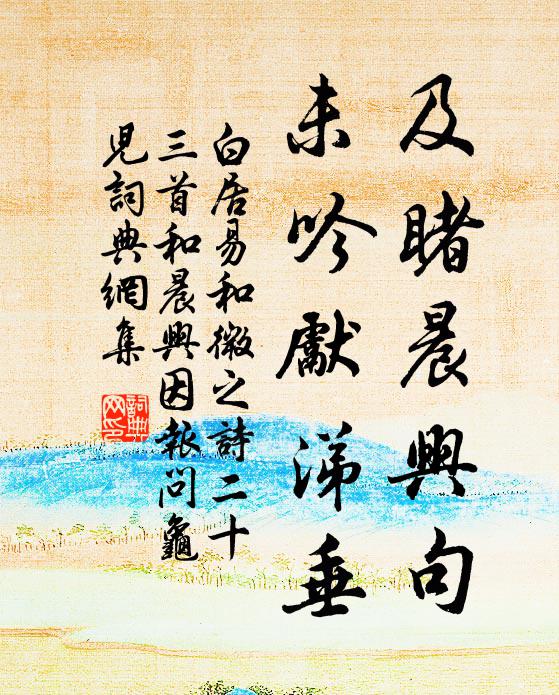 及睹晨興句
未吟獻涕垂
白居易和微之詩二十
三首和晨興因報問龜
兒詞典網集
詞典
网印